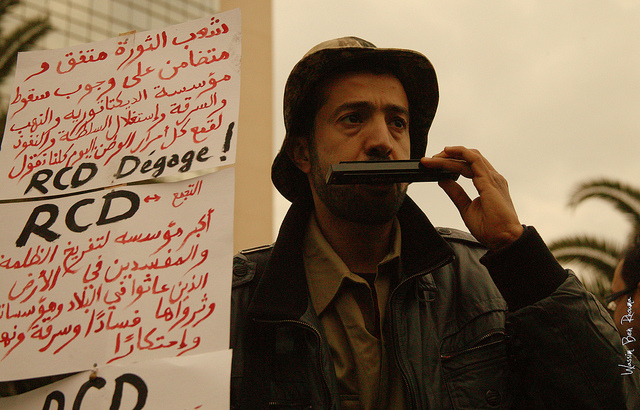 شعب الثورة متفق و
متضامن على وجوب سقوط
مؤسسة الديكتاتورية والنهب
والسرقة وإستغلال السلطة والنفوذ
لقمع كل أحرار الوطن اليوم كلنا نقول
RCD Dégage !
RCD ↔ التجمع
أكبر مؤسسه لتفريخ الظلمة
والمفسدين في الأرض
الذين عاثوا في البلاد ومؤسسا
وثرواها فسادًا وسرقة ونه
وإحتكارًا
RCD
Wassim Ben Rhouma